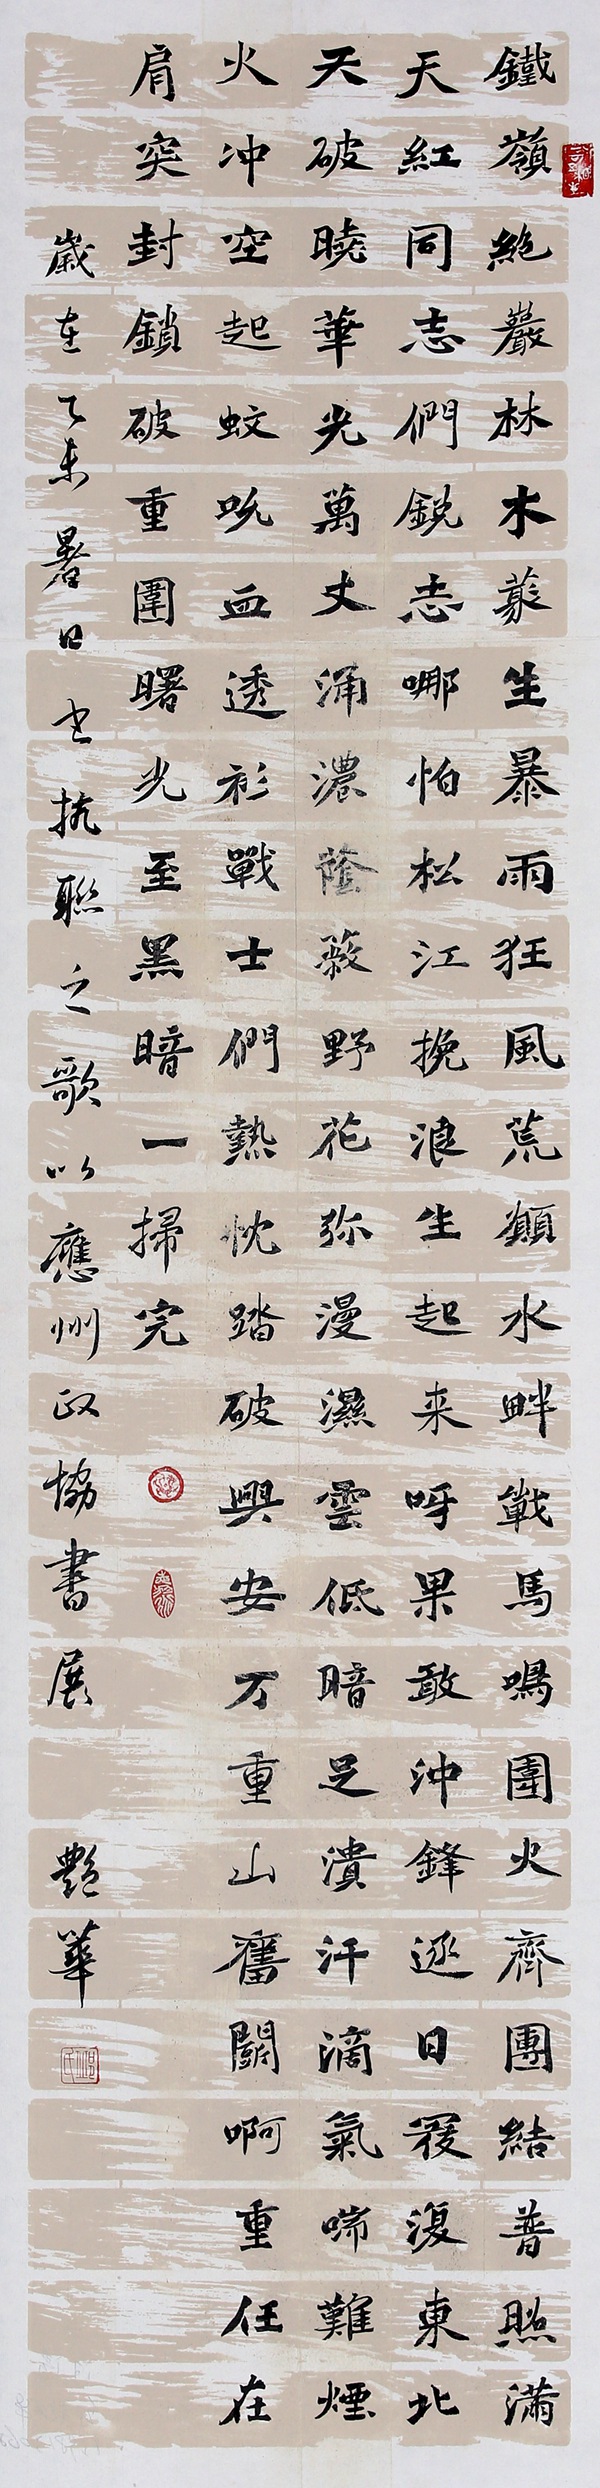 鐵嶺絶巖林木叢生暴雨狂風荒顚水畔戰馬鳴圍火齊團結普照滿
天紅同志們鋭志哪怕松江挽浪生起来呀果敢沖鋒逐日寇復東北
天破曉華光萬丈涌濃蔭蔽野花弥漫濕雲低暗足潰汗滴氣喘難煙
火冲空起蚊吮血透衫戰士們熱忱踏破興安万重山奮鬭啊重任在
肩突封鎖破重圍曙光至黑暗一掃完
歲在乙未暑日書抗聯之歌以應州政協書展
艶華